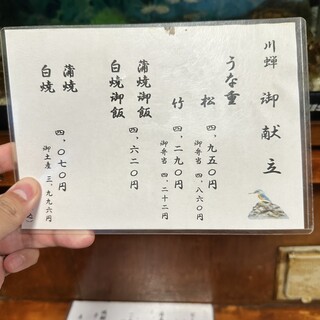 川蝉 御献立
うな重
松 四、九五〇円
御弁当 四、八六〇円
竹 四、二九〇円
御弁当 四、二一二円
蒲焼御飯
白焼御飯
四、六二〇円
蒲焼
白焼
四、〇七〇円
御土産 三、九九六円